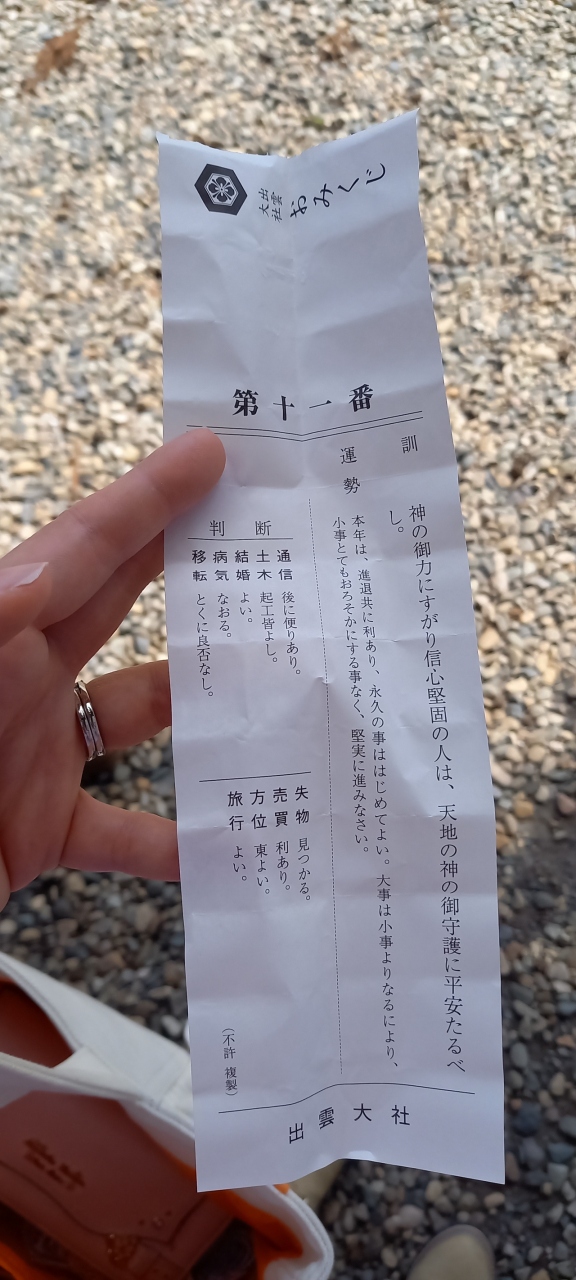 出雲
大社
おみくじ
第十一番
訓
神の御力にすがり信心堅固の人は、天地の神の御守護に平安たるべ
し。
運勢
本年は、進退共に利あり、永久の事ははじめてよい。大事は小事よりなるにより、
小事とてもおろそかにする事なく、堅実に進みなさい。
判断
通信 後に便りあり。
土木 起工皆よし。
結婚 よい。
病気 なおる。
移転 とくに良否なし。
失物 見つかる。
売買 利あり。
方位 東よい。
旅行 よい。
(不許複製)
出雲大社